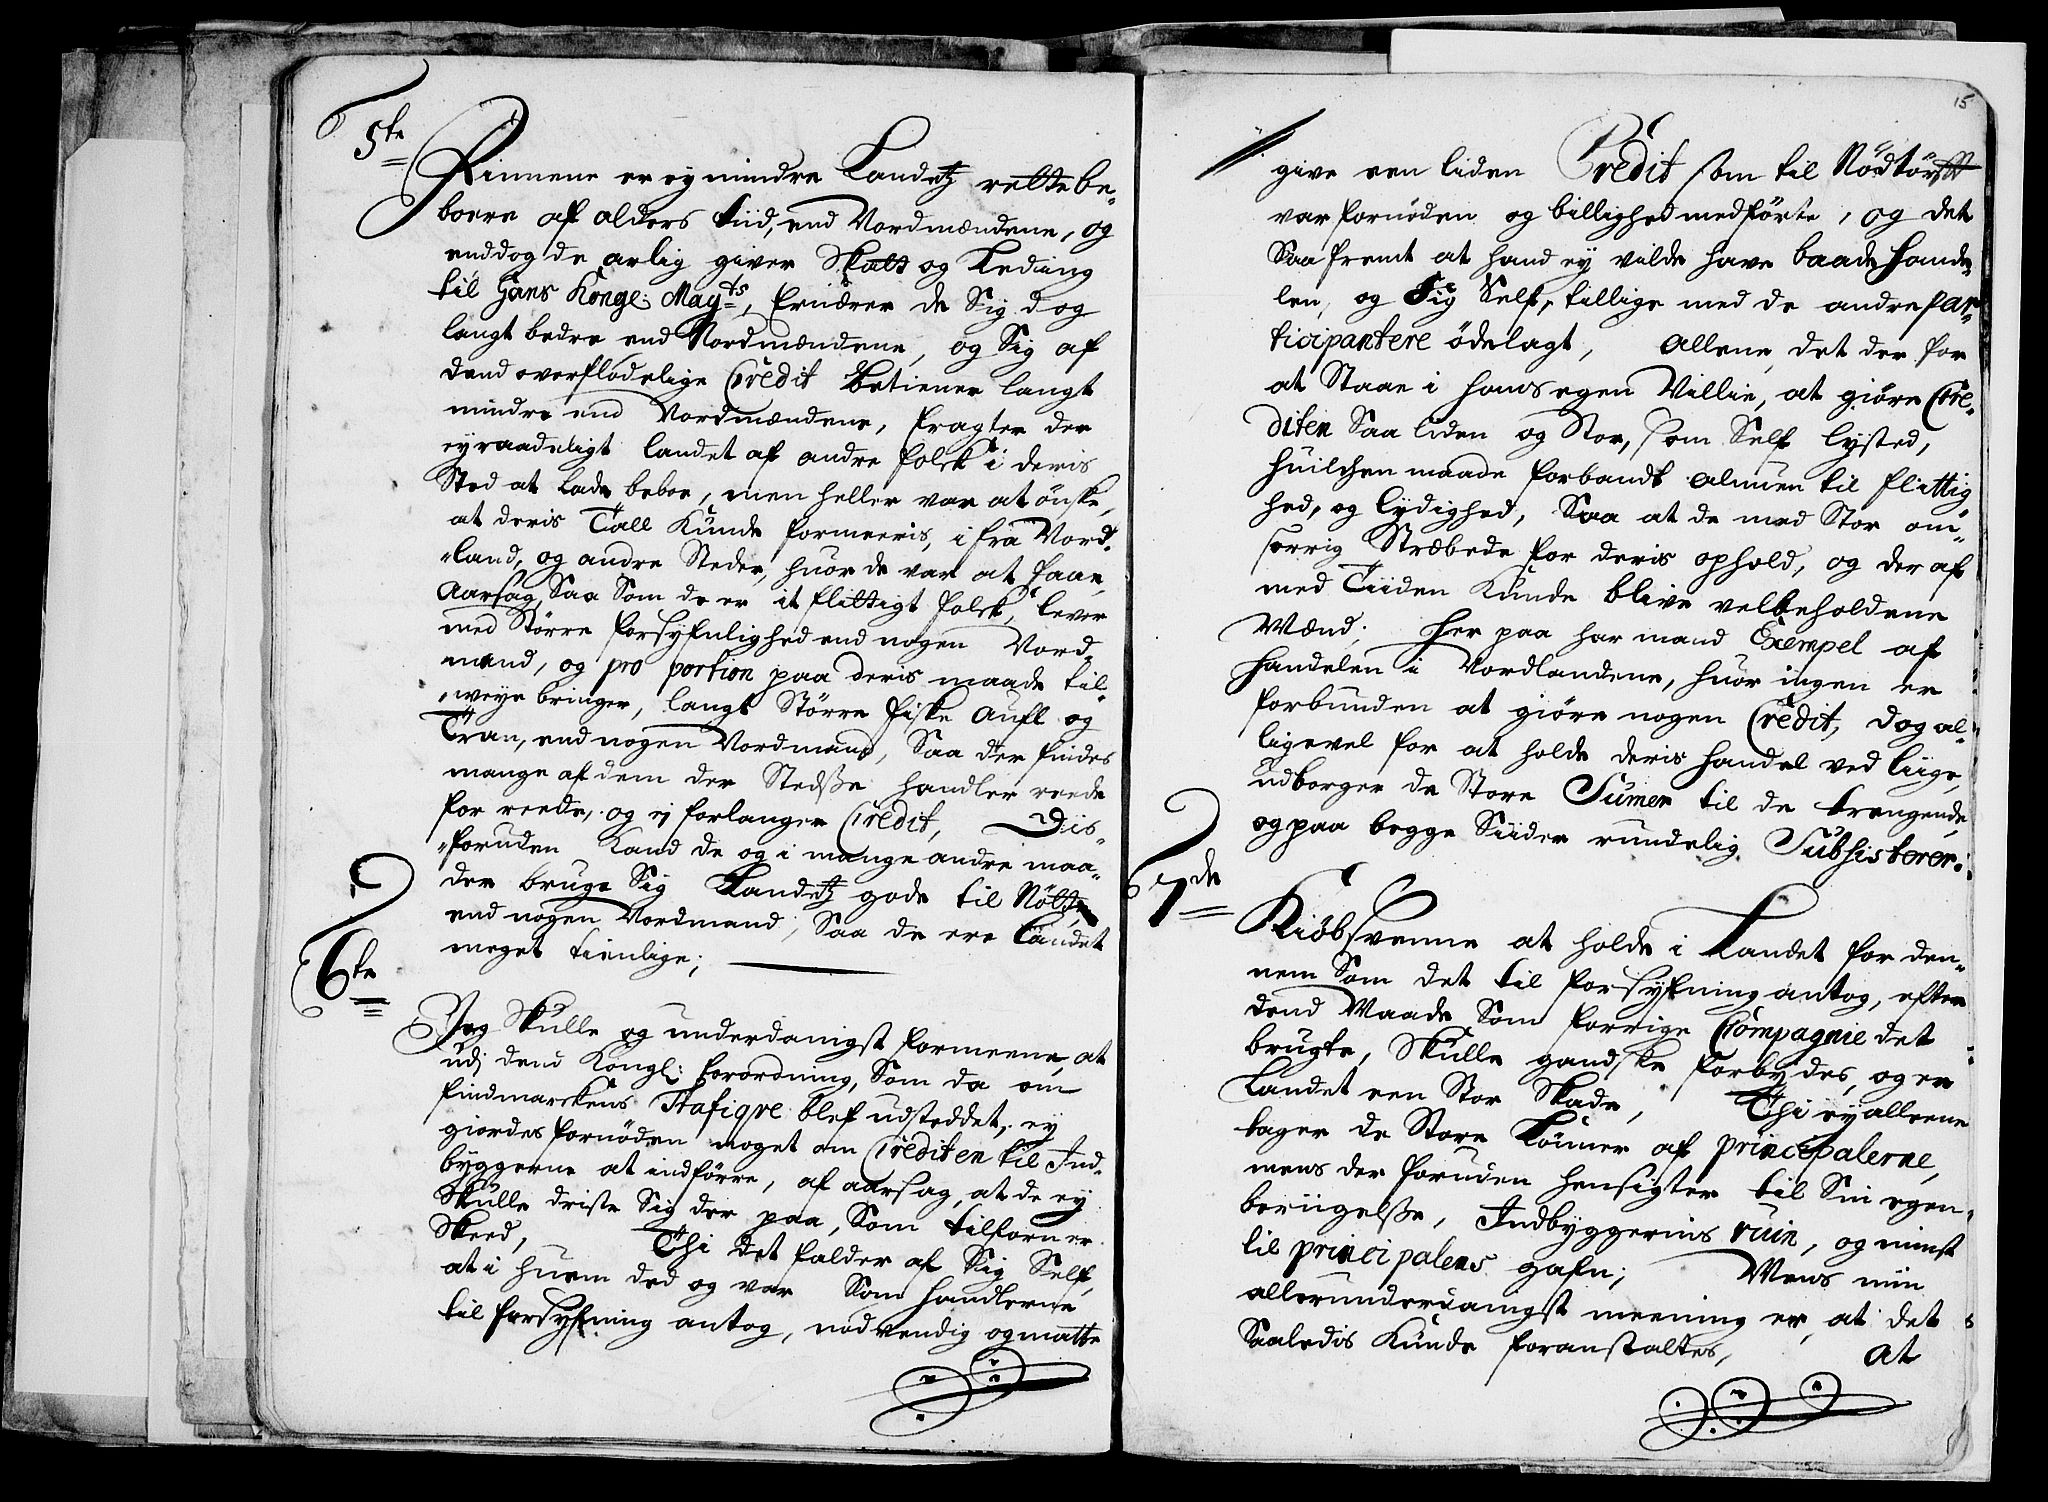 5te
Finnene er ey mindre Landetz rette be-
boere af alders tiid, end Nordmændene, og
enddog de arlig giver Skatt og Leding
til Hans Kongl: Mayts, Ernærer de Sig dog
langt bedre end Nordmændene, og Sig af
dend overflödelige Credit betiener langt
mindre end Nordmændene, Eragter der
eyraadeligt landet af andre folck i deris
Sted at lade beboe, men heller var at ønske,
at deris Tall Kunde formeeris, i fra Nord-
land, og andre Steder, huor de var at faae,
Aarsag, Saa Som de er it flittigt folck, lever
med Större forsyfnlighed end nogen Nord-
mand, og pro portion paa deris maade til-
weye bringer, langt Större fiske Aufl og
Tran, end nogen Nordmand, Saa der findes
mange af dem der Stedsse handler reede
for reede, og ej forlanger Credit, Diis-
foruden Kand de og i mange andre maa-
der bruge Sig Landetz gode til Nötte,
end nogen Nordmand, Saa de ere Landet
meget tienlige;
6te
Jeg Skulle og underdanigst formeene, at
udj dend Kongl: forordning, Som da om
findmarckens Trafiqve blef udsteddet, ey
giordes fornöden noget om Crediten til Ind-
byggerne at indförre, af aarsag, at de ey
Skulle driste Sig der paa, Som tilforn er
Skeed, Thi det falder af Sig Self,
at i huem ded og var Som handlerne
til forsyfning antog, nödvendig og matte
15
give een liden Credit som til Nödtörfft
var fornöden og billighed medförte, og det
Saafremt at hand ey vilde have baade hande-
len, og Sig Self, tillige med de andre par-
ticipantere ödelagt, Allene, det der for
at Staae i hans egen Villie, at giöre Cre-
diten Saa liden og Stor, som Self lysted,
huilchen maade forbandt almuen til flittig-
hed, og lydighed, Saa at de med Stor om-
sorrig Stræbede for deris ophold, og der af
med Tiiden Kunde blive velbeholdene
Mænd; Her paa har mand Exempel af
Handelen i Nordlandene, huor ingen er
forbunden at giöre nogen Credit, dog al-
ligevel for at holde deris handel ved liige,
udborger de Store Sumer til de trengende,
og paa begge Siider rundelig Subsisterer.
7de
Kiöbsvenne at holde i Landet for den-
nem Som det til forsyfning antog, efter
dend Maade Som forrige Compagnie det
brugte, Skulle gandske forbydes, og er
Landet een Stor Skade, Thi ey alleene
tager de Store Lönner af principalerne,
mens der foruden hensigter til Sin egen
beriigelsse, Indbyggernis ruin, og minst
til principalens gafn; Mens min
allerunderdanigst meening er, at det
Saaledis Kunde foranstaltes,
At